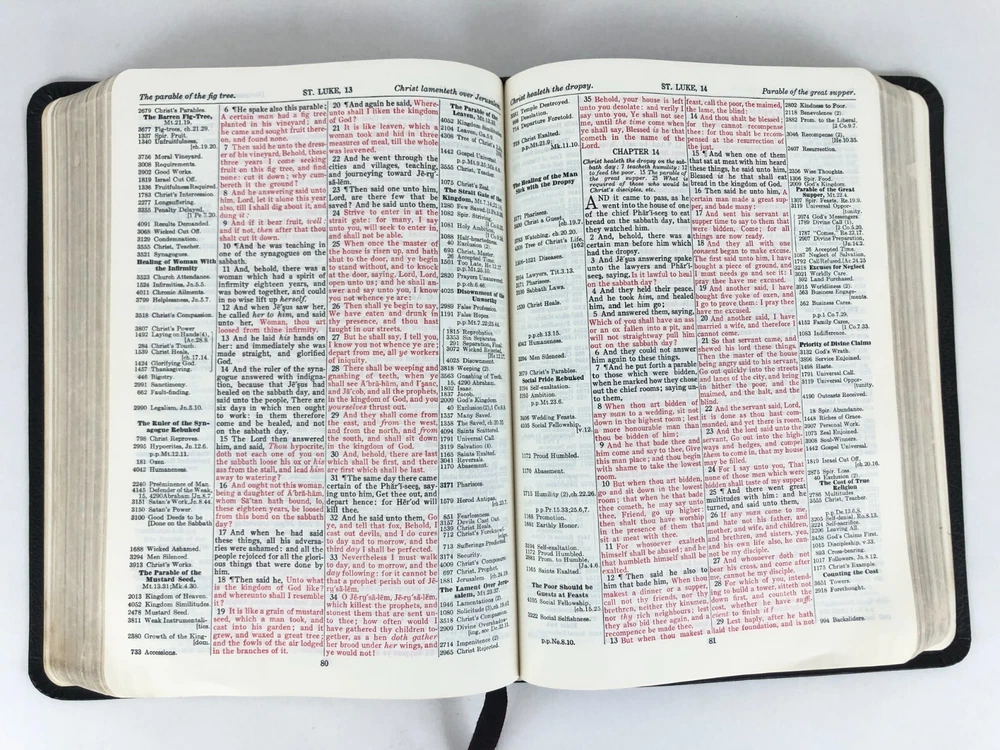 The parable of the fig tree.
ST. LUKE, 13
Christ lamenteth over Jerusalem.
2679 Christ's Parables.
The Barren Fig-Tree,
Mt.21.19.
3677 Fig-trees, ch.21.29.
1337 Spir. Fruit.
1340 Unfruitfulness,
3756 Moral Vineyard.
3008 Requirements.
2902 Good Works.
1819 Israel Cut Off.
1336 Fruitfulness Required.
1783 Christ's Intercession.
2277 Longsuffering.
2355 Penalty Delayed,
4091 Results Demanded.
3068 Wicked Cut Off.
3129 Condemnation.
3555 Christ, Teacher.
3521 Synagogues.
Healing of Woman with
the Infirmity
3523 Church Attendance.
1524 Infirmities, Jn.5.5.
4011 Chronic Ailments.
3799 Helplessness, Jn.5.7.
3518 Christ's Compassion.
3807 Christ's Power
284 Christ's Touch.
1539 Christ Heals,
ch.17.14.
1434 Glorifying God.
1457 Thanksgiving.
446 Bigotry.
2991 Sanctimony.
662 Fault-finding.
2990 Legalism, Jn.5.10.
The Ruler of the Syn-
agogue Rebuked
798 Christ Reproves.
2995 Hypocrisy, Jn.12.6.
p.p.Mt.12.11.
131 Oxen.
4042 Humaneness.
2240 Preëminence of Man.
4145 Defender of the Weak,
15, 4290 Abraham, Jn.8.7.
3151 Satan's Work, Jn.8.44.
3150 Satan's Power
2100 Good Deeds to be
[Done on the Sabbath
1688 Wicked Ashamed.
3294 Men Silenced.
3913 Christ's Works.
The Parable of the
Mustard Seed,
Mt.13.31; Mk.4.30.
2013 Kingdom of Heaven.
4052 Kingdom Similitudes.
2478 Mustard Seed.
3811 Weak Instrumentali-
[ties.
2380 Growth of the King-
[dom.
733 Accessions.
6 ¶He spake also this parable;
A certain man had a fig tree
planted in his vineyard; and
he came and sought fruit there-
on, and found none.
7 Then said he unto the dress-
er of his vineyard, Behold, these
three years I come seeking
fruit on this fig tree, and find
none: cut it down; why cum-
bereth it the ground?
8 And he answering said unto
him, Lord, let it alone this year
also, till I shall dig about it, and
dung it:
9 And if it bear fruit, well:
and if not, then after that thou
shalt cut it down.
10 ¶And he was teaching in
one of the synagogues on the
sabbath.
11 And, behold, there was a
woman which had a spirit of
infirmity eighteen years, and
was bowed together, and could
in no wise lift up herself.
12 And when Jē'ṣus saw her,
he called her to him, and said
unto her, Woman, thou art
loosed from thine infirmity.
13 And he laid his hands on
her: and immediately she was
made straight, and glorified
God.
14 And the ruler of the syna-
gogue answered with indigna-
tion, because that Jē'ṣus had
healed on the sabbath day, and
said unto the people, There are
six days in which men ought
to work: in them therefore
come and be healed, and not
on the sabbath day.
15 The Lord then answered
him, and said, Thou hypocrite,
doth not each one of you on
the sabbath loose his ox or his
ass from the stall, and lead him
away to watering?
16 And ought not this woman,
being a daughter of Ā'brȧ-hăm,
whom Sā'tan hath bound, lo,
these eighteen years, be loosed
from this bond on the sabbath
day?
17 And when he had said
these things, all his adversa-
ries were ashamed: and all the
people rejoiced for all the glori-
ous things that were done by
him.
18 ¶Then said he, Unto what
is the kingdom of God like?
and whereunto shall I resemble
it?
19 It is like a grain of mustard
seed, which a man took, and
cast into his garden; and it
grew, and waxed a great tree;
and the fowls of the air lodged
in the branches of it.
20 ¶And again he said, Where-
unto shall I liken the kingdom
of God?
21 It is like leaven, which a
woman took and hid in three
measures of meal, till the whole
was leavened.
22 And he went through the
cities and villages, teaching,
and journeying toward Jē-rṳ'-
sȧ-lĕm.
23 ¶Then said one unto him,
Lord, are there few that be
saved? And he said unto them,
24 Strive to enter in at the
strait gate: for many, I say
unto you, will seek to enter in,
and shall not be able.
25 When once the master of
the house is risen up, and hath
shut to the door, and ye begin
to stand without, and to knock
at the door, saying, Lord, Lord,
open unto us; and he shall an-
swer and say unto you, I know
you not whence ye are:
26 Then shall ye begin to say,
We have eaten and drunk in
thy presence, and thou hast
taught in our streets.
27 But he shall say, I tell you,
I know you not whence ye are;
depart from me, all ye workers
of iniquity.
28 There shall be weeping and
gnashing of teeth, when ye
shall see Ā'brȧ-hăm, and Ī'ṣaac,
and Jā'cob, and all the prophets,
in the kingdom of God, and you
yourselves thrust out.
29 And they shall come from
the east, and from the west,
and from the north, and from
the south, and shall sit down
in the kingdom of God.
30 And, behold, there are last
which shall be first, and there
are first which shall be last.
31 ¶The same day there came
certain of the Phâr'ĭ-seeṣ, say-
ing unto him, Get thee out, and
depart hence; for Hĕr'od will
kill thee.
32 And he said unto them, Go
ye, and tell that fox, Behold, I
cast out devils, and I do cures
to day and to morrow, and the
third day I shall be perfected.
33 Nevertheless I must walk
to day, and to morrow, and the
day following: for it cannot be
that a prophet perish out of Jĕ-
rṳ'sȧ-lĕm.
34 O Jĕ-rṳ'sȧ-lĕm, Jĕ-rṳ'sȧ-lĕm,
which killest the prophets, and
stonest them that are sent un-
to thee; how often would I
have gathered thy children to-
gether, as a hen doth gather
her brood under her wings, and
ye would not!
The Parable of the
Leaven, Mt.13.33.
4052 Kingdom Similitudes
2104 Leaven, Ga.5.9.
1442 Gospel Universal,
3555 Christ, Teacher.
1075 Christ's Zeal.
The Strait Gate of the
1250 Few Saved,
1082 Spir. Striving.
1081 Holy Ambition
1088 Half-hearted
693 Christ, Master.
26 Accepted Time.
1501 Too Late,
p.p.Mt.25.10.
2820 Prayers Unanswered
p.p.ch.6.46.
4025 Disownment of the
Unworthy
2989 False Profession.
1191 False Hopes
p.p.Mt.7.22;25.44.
1815 Reprobation,
3353 Sin Separates
291 Separation, Final.
3072 Wicked Rejected,
4025 Disownment.
3818 Weeping (2).
3563 Gnashing of Teeth.
15, 4290 Abraham.
1802 Isaac.
1837 Jacob.
2009 God's Kingdom
40 Exclusion (2),
1357 Many Saved.
1358 The Saved, ch.20.35
4094 Saints Scattered.
1791 Universal Call
3129 Salvation (4).
1165 Saints Exalted.
3041 Reversals.
1170 Abasement.
3171 Pharisees.
1579 Herod Antipas,
851 Fearlessness
3157 Devils Cast Out
1539 Christ Heals
712 Christ's Foreknowl-
713 Sufferings Predicted.
3174 Security.
4009 Christ's Compassion
697 Christ, Prophet.
1881 Jerusalem.
The Lament Over Jeru-
salem, Mt.23.37.
1946 Lamentations (2).
1080 Solicitude
3518 Christ's Compassion
2909 Divine Overshadow-
2714 Impenitence (2).
2965 Christ Rejected.
80
Christ healeth the dropsy.
ST. LUKE, 14
Parable of the great supper.
Temple Destroyed.
Desolation.
714 Departure Foretold.
Christ Exalted.
The Healing of the Man
Sick with the Dropsy
2171 Pharisees.
Christ a Guest,
Watching, ch.20.20.
1508-1521 Diseases.
2114 Lawyers, Tit.3.13.
2171 Pharisees.
2098 Sabbath Laws.
1539 Christ Heals.
p.p.ch.13.15.
4042 Humaneness.
3294 Men Silenced.
2679 Christ's Parables.
Social Pride Rebuked
1194 Self-exaltation.
1192 Ambition.
p.p.Mt.23.6.
3406 Wedding Feasts.
4105 Social Fellowship,
1172 Proud Humbled.
1170 Abasement.
1715 Humility (2), ch.22.26.
p.p.Pr.15.33;25.6,7.
1168 Promotion.
1691 Early Honor.
3194 Self-exaltation.
1172 Proud Humbled.
1165 Saints Exalted.
The Poor Should be
Guests at Feasts
4105 Social Fellowship,
1222 Social Selfishness.
p.p.Ne.8.10.
35 Behold, your house is left
unto you desolate: and verily I
say unto you, Ye shall not see
me, until the time come when
ye shall say, Blessed is he that
cometh in the name of the
Lord.
CHAPTER 14
Christ healeth the dropsy on the sab-
bath day; 7 teacheth humility; 12
to feed the poor. 15 The parable of
the great supper. 25 What is
required of those who would be
Christ's disciples, etc.
AND it came to pass, as he
went into the house of one
of the chief Phâr'ĭ-seeṣ to eat
bread on the sabbath day, that
they watched him.
2 And, behold, there was a
certain man before him which
had the dropsy.
3 And Jē'ṣus answering spake
unto the lawyers and Phâr'ĭ-
seeṣ, saying, Is it lawful to heal
on the sabbath day?
4 And they held their peace.
And he took him, and healed
him, and let him go;
5 And answered them, saying,
Which of you shall have an ass
or an ox fallen into a pit, and
will not straightway pull him
out on the sabbath day?
6 And they could not answer
him again to these things.
7 ¶And he put forth a parable
to those which were bidden,
when he marked how they chose
out the chief rooms; saying un-
to them,
8 When thou art bidden of
any man to a wedding, sit not
down in the highest room; lest
a more honourable man than
thou be bidden of him;
9 And he that bade thee and
him come and say to thee, Give
this man place; and thou begin
with shame to take the lowest
room.
10 But when thou art bidden,
go and sit down in the lowest
room; that when he that bade
thee cometh, he may say unto
thee, Friend, go up higher:
then shalt thou have worship
in the presence of them that
sit at meat with thee.
11 For whosoever exalteth
himself shall be abased; and he
that humbleth himself shall be
exalted.
12 ¶Then said he also to
him that bade him, When thou
makest a dinner or a supper,
call not thy friends, nor thy
brethren, neither thy kinsmen,
nor thy rich neighbours; lest
they also bid thee again, and a
recompence be made thee.
13 But when thou makest a
feast, call the poor, the maimed,
the lame, the blind:
14 And thou shalt be blessed;
for they cannot recompense
thee: for thou shalt be recom-
pensed at the resurrection of
the just.
15 ¶And when one of them
that sat at meat with him heard
these things, he said unto him,
Blessed is he that shall eat
bread in the kingdom of God.
16 Then said he unto him, A
certain man made a great sup-
per, and bade many:
17 And sent his servant at
supper time to say to them that
were bidden, Come; for all
things are now ready.
18 And they all with one
consent began to make excuse.
The first said unto him, I have
bought a piece of ground, and
I must needs go and see it: I
pray thee have me excused.
19 And another said, I have
bought five yoke of oxen, and
I go to prove them: I pray thee
have me excused.
20 And another said, I have
married a wife, and therefore I
cannot come.
21 So that servant came, and
shewed his lord these things.
Then the master of the house
being angry said to his servant,
Go out quickly into the streets
and lanes of the city, and bring
in hither the poor, and the
maimed, and the halt, and the
blind.
22 And the servant said, Lord,
it is done as thou hast com-
manded, and yet there is room.
23 And the lord said unto the
servant, Go out into the high-
ways and hedges, and compel
them to come in, that my house
may be filled.
24 For I say unto you, That
none of those men which were
bidden shall taste of my supper.
25 ¶And there went great
multitudes with him: and he
turned, and said unto them,
26 If any man come to me,
and hate not his father, and
mother, and wife, and children,
and brethren, and sisters, yea,
and his own life also, he can-
not be my disciple.
27 And whosoever doth not
bear his cross, and come after
me, cannot be my disciple.
28 For which of you, intend-
ing to build a tower, sitteth not
down first, and counteth the
cost, whether he have suffi-
cient to finish it?
29 Lest haply, after he hath
laid the foundation, and is not
2802 Kindness to Poor.
2118 Benevolence (2).
2882 Prom. to the Liberal,
[2 Co.9.7.
3046 Recompense (2),
[He.10.35.
2407 Resurrection.
2336 Wise Thoughts.
1306 Spir. Food.
2009 God's Kingdom.
Parable of the Great
Supper, Mt.22.4.
1307 Spir. Feasts, Re.19.9.
3119 Universal Oppor-
[tunity.
2074 God's Messengers.
1789 Divine Call (1),
[2 Co.5.20.
1787 "Comes," Re.22.17.
2907 Divine Preparation,
[Jn.14.2.
26 Accepted Time.
1087 Neglect of Salvation.
1792 Call Refused, Ac.24.25
2218 Excuses for Neglect
3921 Worldly Care.
592 Land Purchases.
2915 Worldliness
563 Business Engage-
[ments.
562 Business Cares.
p.p.1 Co.7.33.
4152 Family Cares,
1083 Indifference.
Priority of Divine Claims
3132 God's Wrath.
3896 Service Enjoined.
1498 Haste.
1791 Universal Call.
3119 Universal Oppor-
[tunity.
4190 Outcasts Received.
18 Spir. Abundance.
1448 Riches of Grace.
2907 Personal Work.
1073 Zeal Enjoined.
3908 Soul-Winners.
1442 Gospel Universal.
1819 Israel Cut Off,
[ch.20.16.
2875 Spir. Loss.
40 Exclusion
The Cost of True
Religion
2768 Multitudes
3555 Christ, Teacher.
3205 Self-denial,
3224 Self-sacrifice.
2206 Leaving All.
3458 God's Claims First.
1015 Discipleship,
893 Cross-bearing.
1017 Followers, Jn.8.12.
1173 Christ's Example.
Counting the Cost
3651 Towers.
2918 Forethought.
994 Backsliders.
81